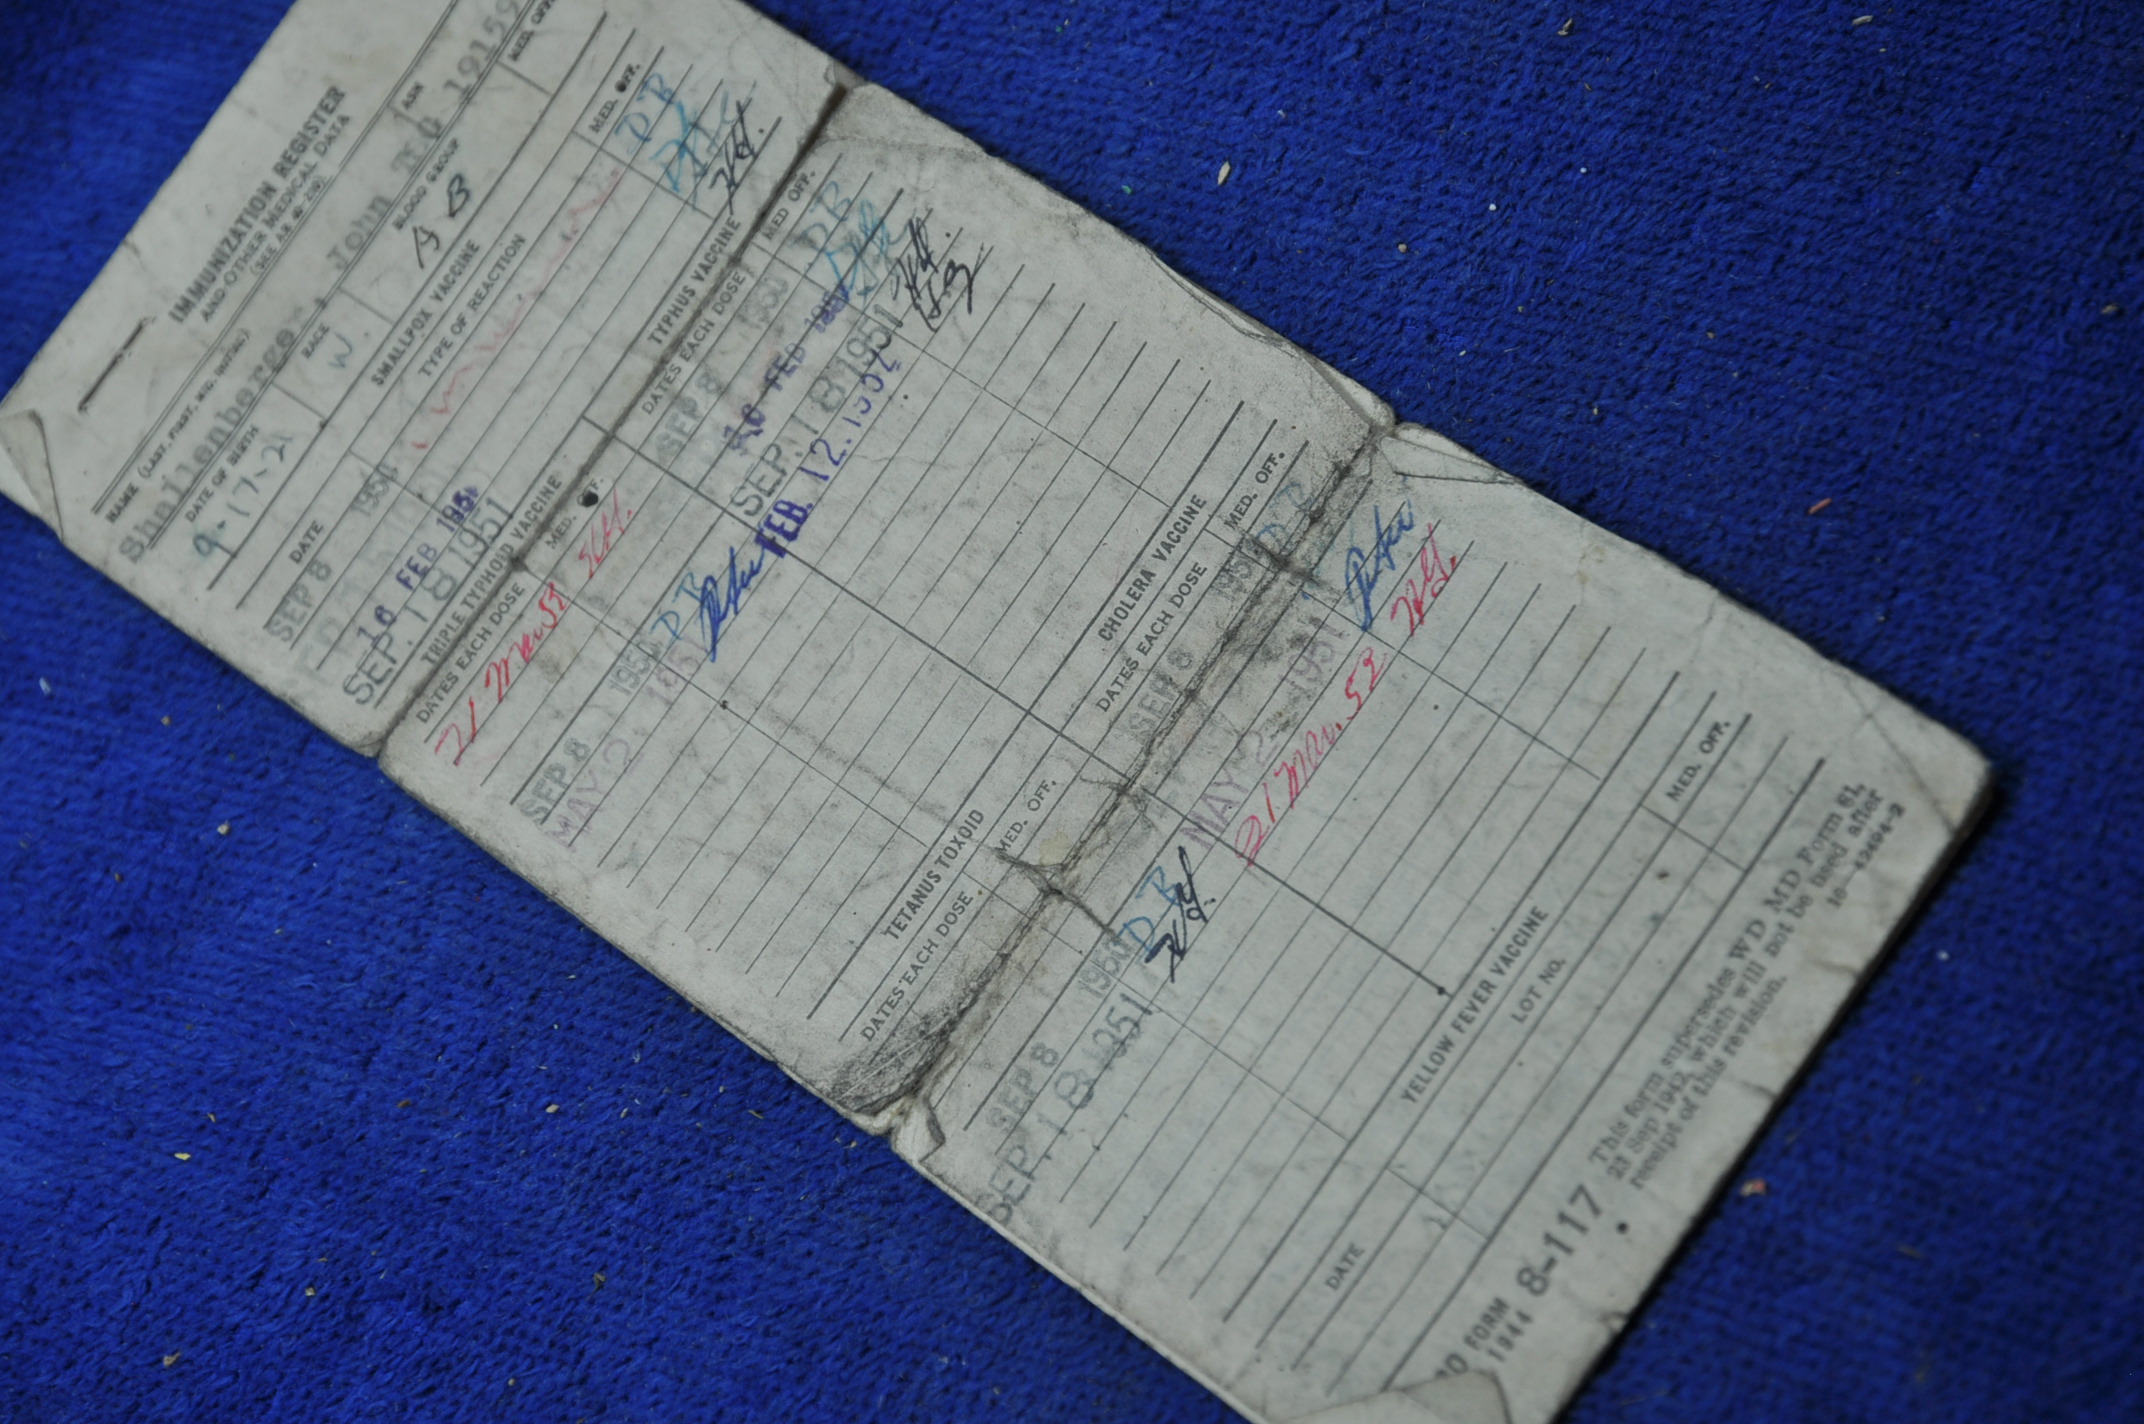 IMMUNIZATION REGISTER
AND OTHER MEDICAL DATA
(SEE AR 40-210)
NAME (LAST, FIRST, MID. INITIAL) ASN
Shallenberger, John
DATE OF BIRTH RACE BLOOD GROUP MED. OFF.
9-17-21 W AB
SMALLPOX VACCINE
DATE TYPE OF REACTION MED. OFF.
SEP 8 DB
16 FEB 1951
SEP. 18 1951
TRIPLE TYPHOID VACCINE
DATES EACH DOSE MED. OFF.
21 Mar. 53
SEP 8 1950 DB
MAY 2
TYPHUS VACCINE
DATES EACH DOSE MED OFF.
SEP 8 1950 DB
FEB
SEP. 18 1951
FEB. 12. 1952
TETANUS TOXOID
DATES EACH DOSE MED. OFF.
SEP 8 1950 DB
SEP. 18 1951
CHOLERA VACCINE
DATES EACH DOSE MED. OFF.
SEP 8 1950 DB
MAY 2 1951
21 Mar. 53
YELLOW FEVER VACCINE
DATE LOT NO. MED. OFF.
FORM
1944 8-117
This form supersedes WD MD Form 81,
23 Sep 1942, which will not be used after
receipt of this revision.
16-42494-2